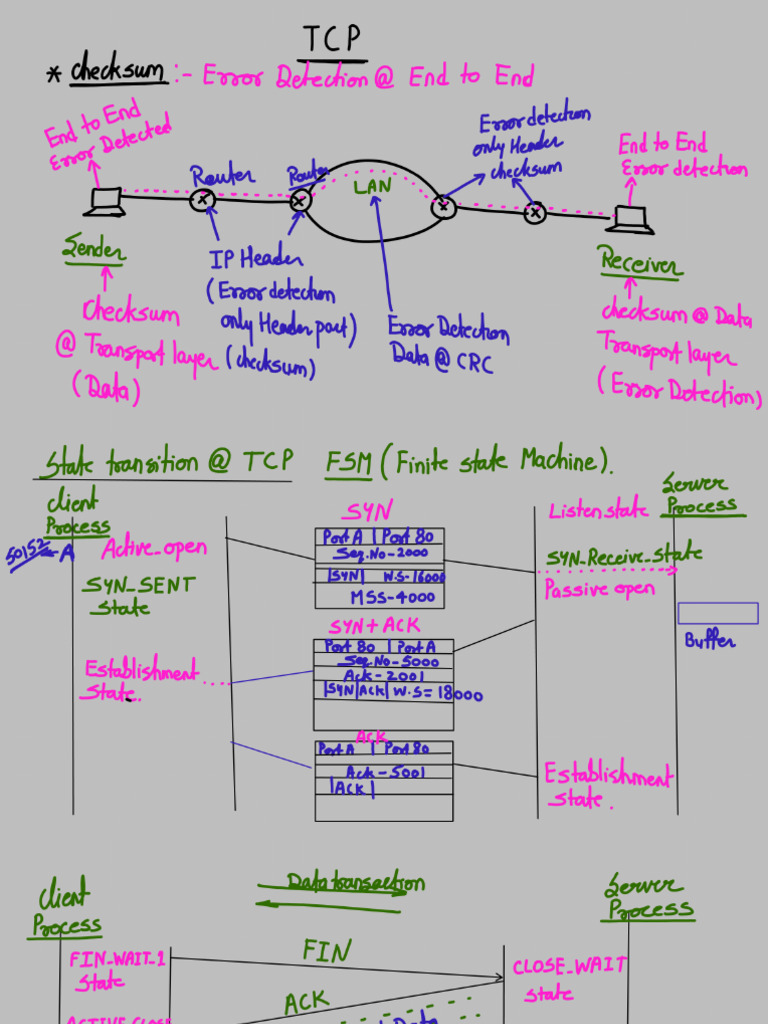 TCP
* checksum :- Error Detection @ End to End
End to End
Error Detected
Router
Router
LAN
Error detection
only Header
checksum
End to End
Error detection
Sender
Receiver
IP Header
(Error detection
only Header part)
(checksum)
checksum
@ Transport layer
(Data)
Error Detection
Data @ CRC
checksum @ Data
Transport layer
(Error Detection)
State transition @ TCP FSM (Finite state Machine).
Client
Process
Server
Process
50152 A
Active_open
SYN_SENT
State
Establishment
State.
SYN
Port A | Port 80
Seq.No-2000
|SYN| W.S-16000
MSS-4000
SYN+ACK
Port 80 | Port A
Seq.No-5000
Ack-2001
|SYN|ACK| W.S=18000
ACK
Port A | Port 80
Ack-5001
|ACK|
Listen state
SYN_Receive_State
Passive open
Buffer
Establishment
State.
Client
Process
Data transaction
Server
Process
FIN_WAIT_1
State
FIN
CLOSE_WAIT
State
ACK
ACTIVE_CLOSE
Data